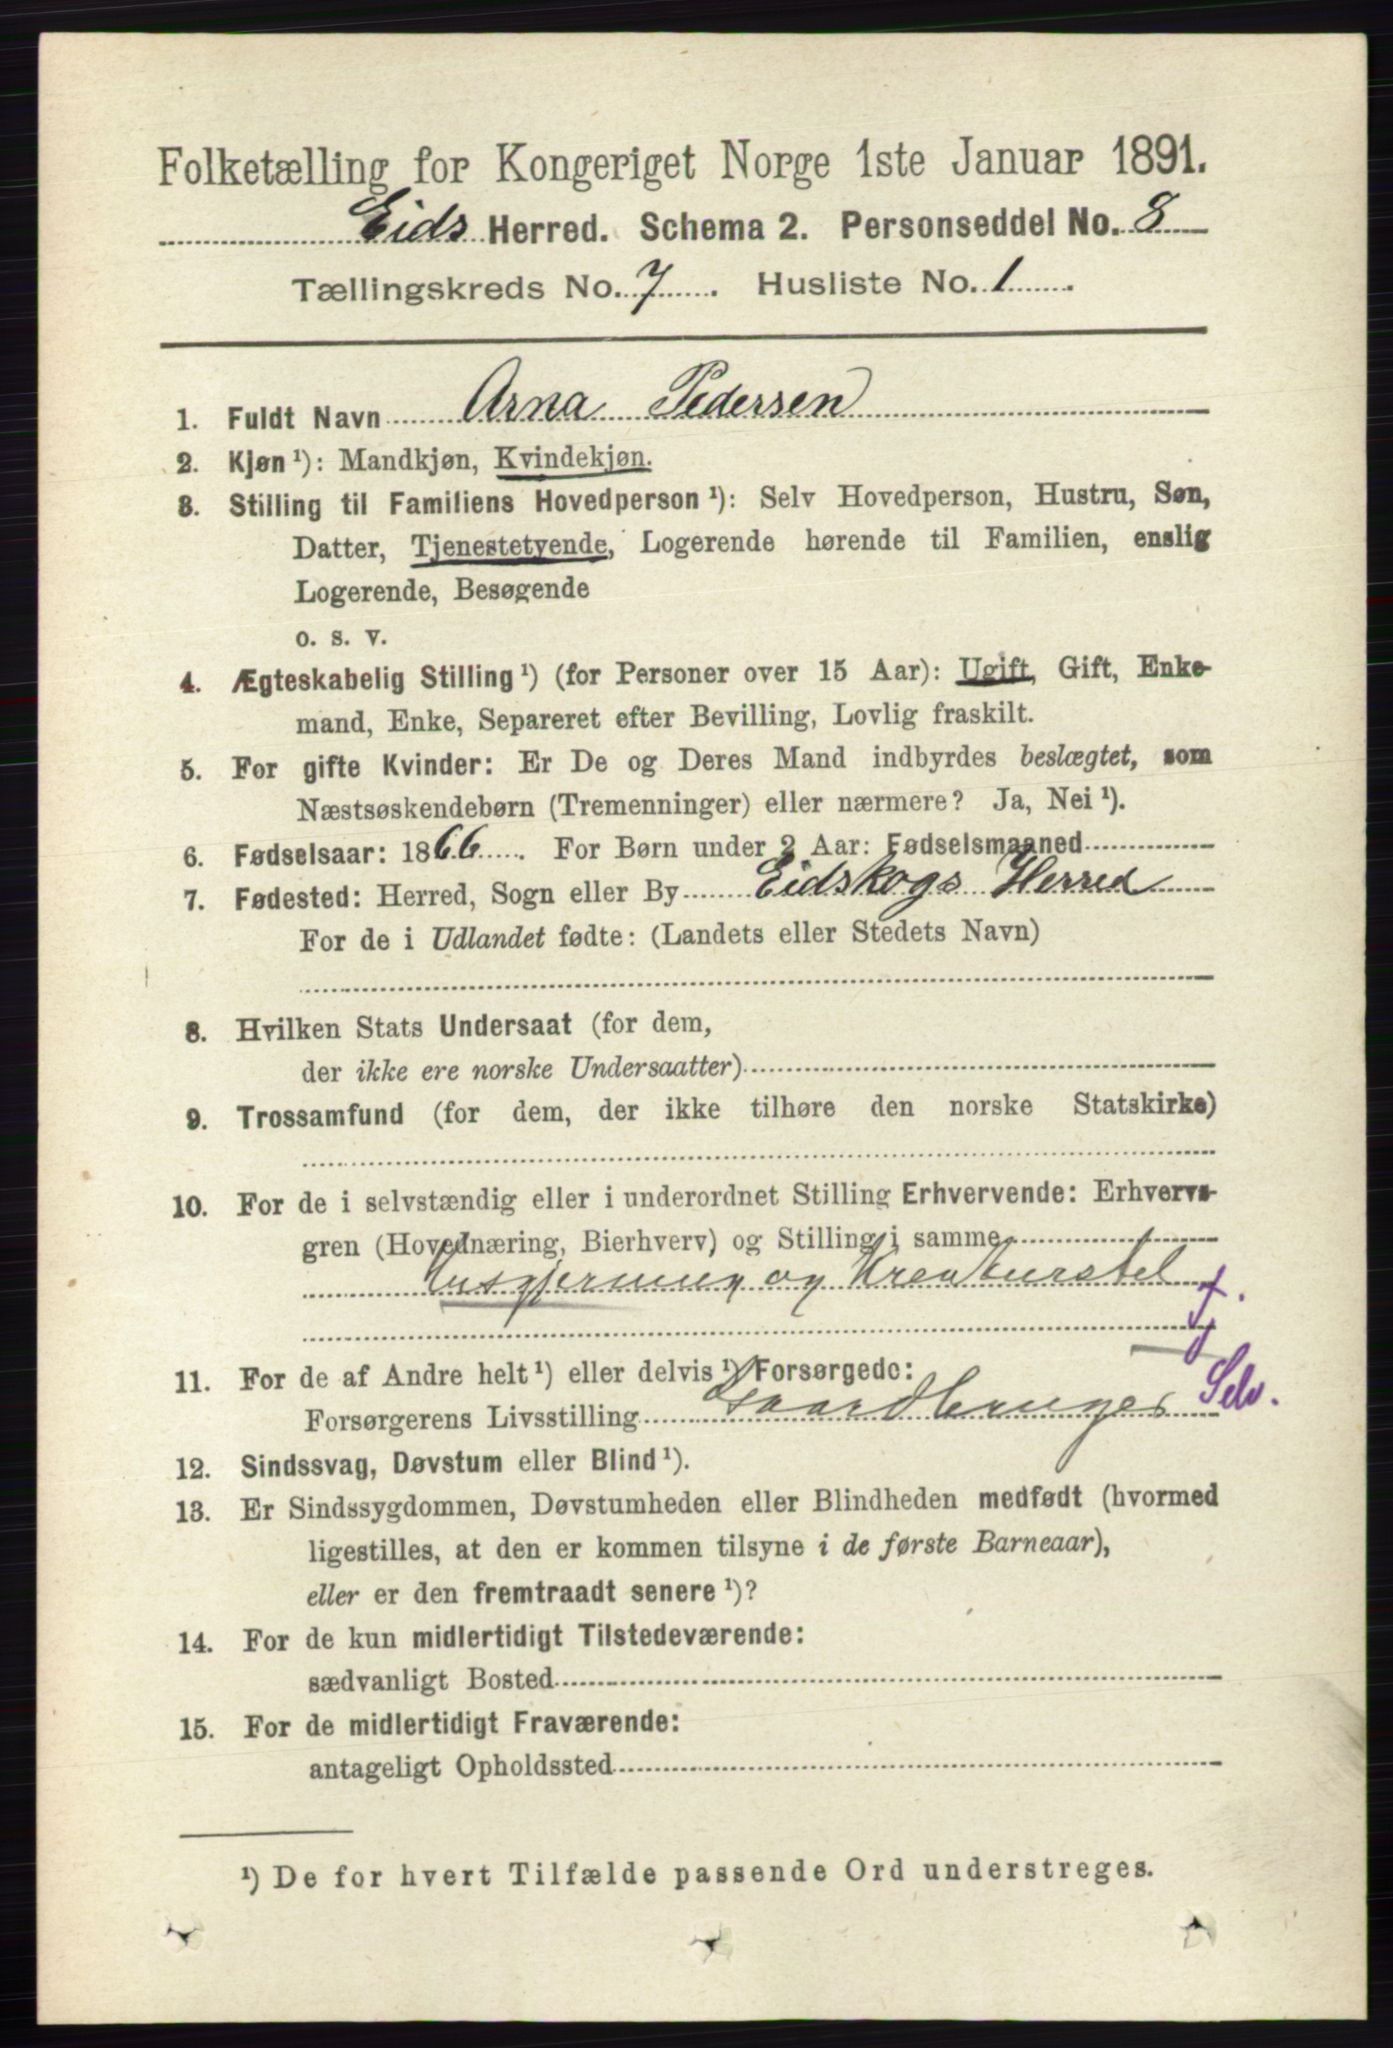 Folketælling for Kongeriget Norge 1ste Januar 1891.
Eids Herred. Schema 2. Personseddel No. 8
Tællingskreds No. 7. Husliste No. 1.
1. Fuldt Navn Arna Pedersen
2. Kjøn ¹): Mandkjøn, Kvindekjøn.
3. Stilling til Familiens Hovedperson ¹): Selv Hovedperson, Hustru, Søn,
Datter, Tjenestetyende, Logerende hørende til Familien, enslig
Logerende, Besøgende
o. s. v.
4. Ægteskabelig Stilling ¹) (for Personer over 15 Aar): Ugift, Gift, Enke-
mand, Enke, Separeret efter Bevilling, Lovlig fraskilt.
5. For gifte Kvinder: Er De og Deres Mand indbyrdes beslægtet, som
Næstsøskendebørn (Tremenninger) eller nærmere? Ja, Nei ¹).
6. Fødselsaar: 1866. For Børn under 2 Aar: Fødselsmaaned
7. Fødested: Herred, Sogn eller By Eidskogs Herred
For de i Udlandet fødte: (Landets eller Stedets Navn)
8. Hvilken Stats Undersaat (for dem,
der ikke ere norske Undersaatter)
9. Trossamfund (for dem, der ikke tilhøre den norske Statskirke)
10. For de i selvstændig eller i underordnet Stilling Erhvervende: Erhvervs-
gren (Hovednæring, Bierhverv) og Stilling i samme
Husgjerning og Kreaturstel
Tj.
11. For de af Andre helt ¹) eller delvis ¹) Forsørgede:
Forsørgerens Livsstilling Gaardbruger Selv.
12. Sindssvag, Døvstum eller Blind ¹).
13. Er Sindssygdommen, Døvstumheden eller Blindheden medfødt (hvormed
ligestilles, at den er kommen tilsyne i de første Barneaar),
eller er den fremtraadt senere ¹)?
14. For de kun midlertidigt Tilstedeværende:
sædvanligt Bosted
15. For de midlertidigt Fraværende:
antageligt Opholdssted
¹) De for hvert Tilfælde passende Ord understreges.